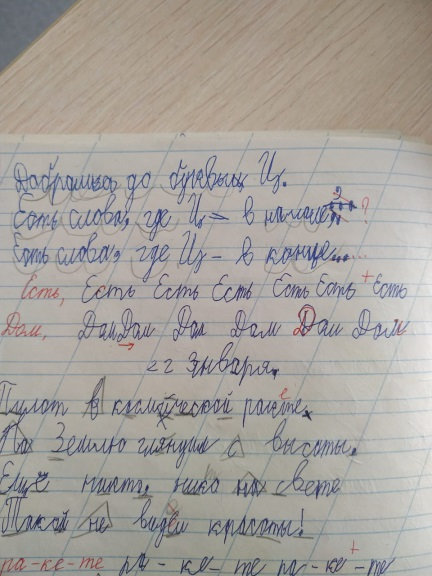 Добрались до буквы Ц.
Есть слова, где Ц - в начале, ?
Есть слова, где Ц - в конце......
Есть, Есть Есть Есть Есть Есть + Есть
Дом, Дом Дом Дом Дом Дом Дом
22 января.
Пилот в космической ракете
На Землю глянул с высоты.
Ещё никто, нико на свете
Такой не видел красоты!
ра-ке-те ра-ке-те ра-ке-те